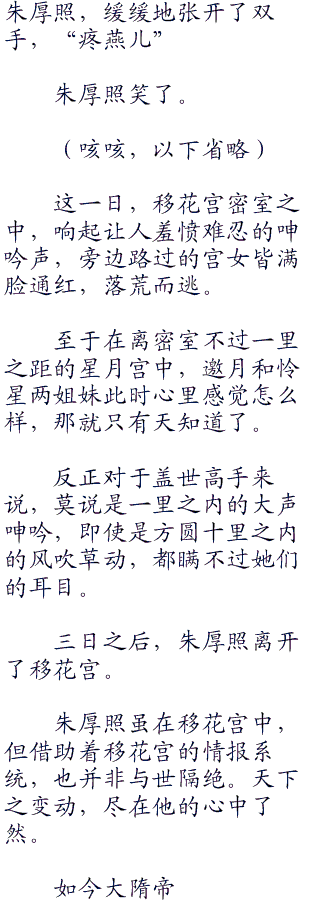 朱厚照，缓缓地张开了双
手，“疼燕儿”
朱厚照笑了。
（咳咳，以下省略）
这一日，移花宫密室之
中，响起让人羞愤难忍的呻
吟声，旁边路过的宫女皆满
脸通红，落荒而逃。
至于在离密室不过一里
之距的星月宫中，邀月和怜
星两姐妹此时心里感觉怎么
样，那就只有天知道了。
反正对于盖世高手来
说，莫说是一里之内的大声
呻吟，即使是方圆十里之内
的风吹草动，都瞒不过她们
的耳目。
三日之后，朱厚照离开
了移花宫。
朱厚照虽在移花宫中，
但借助着移花宫的情报系
统，也并非与世隔绝。天下
之变动，尽在他的心中了
然。
如今大隋帝